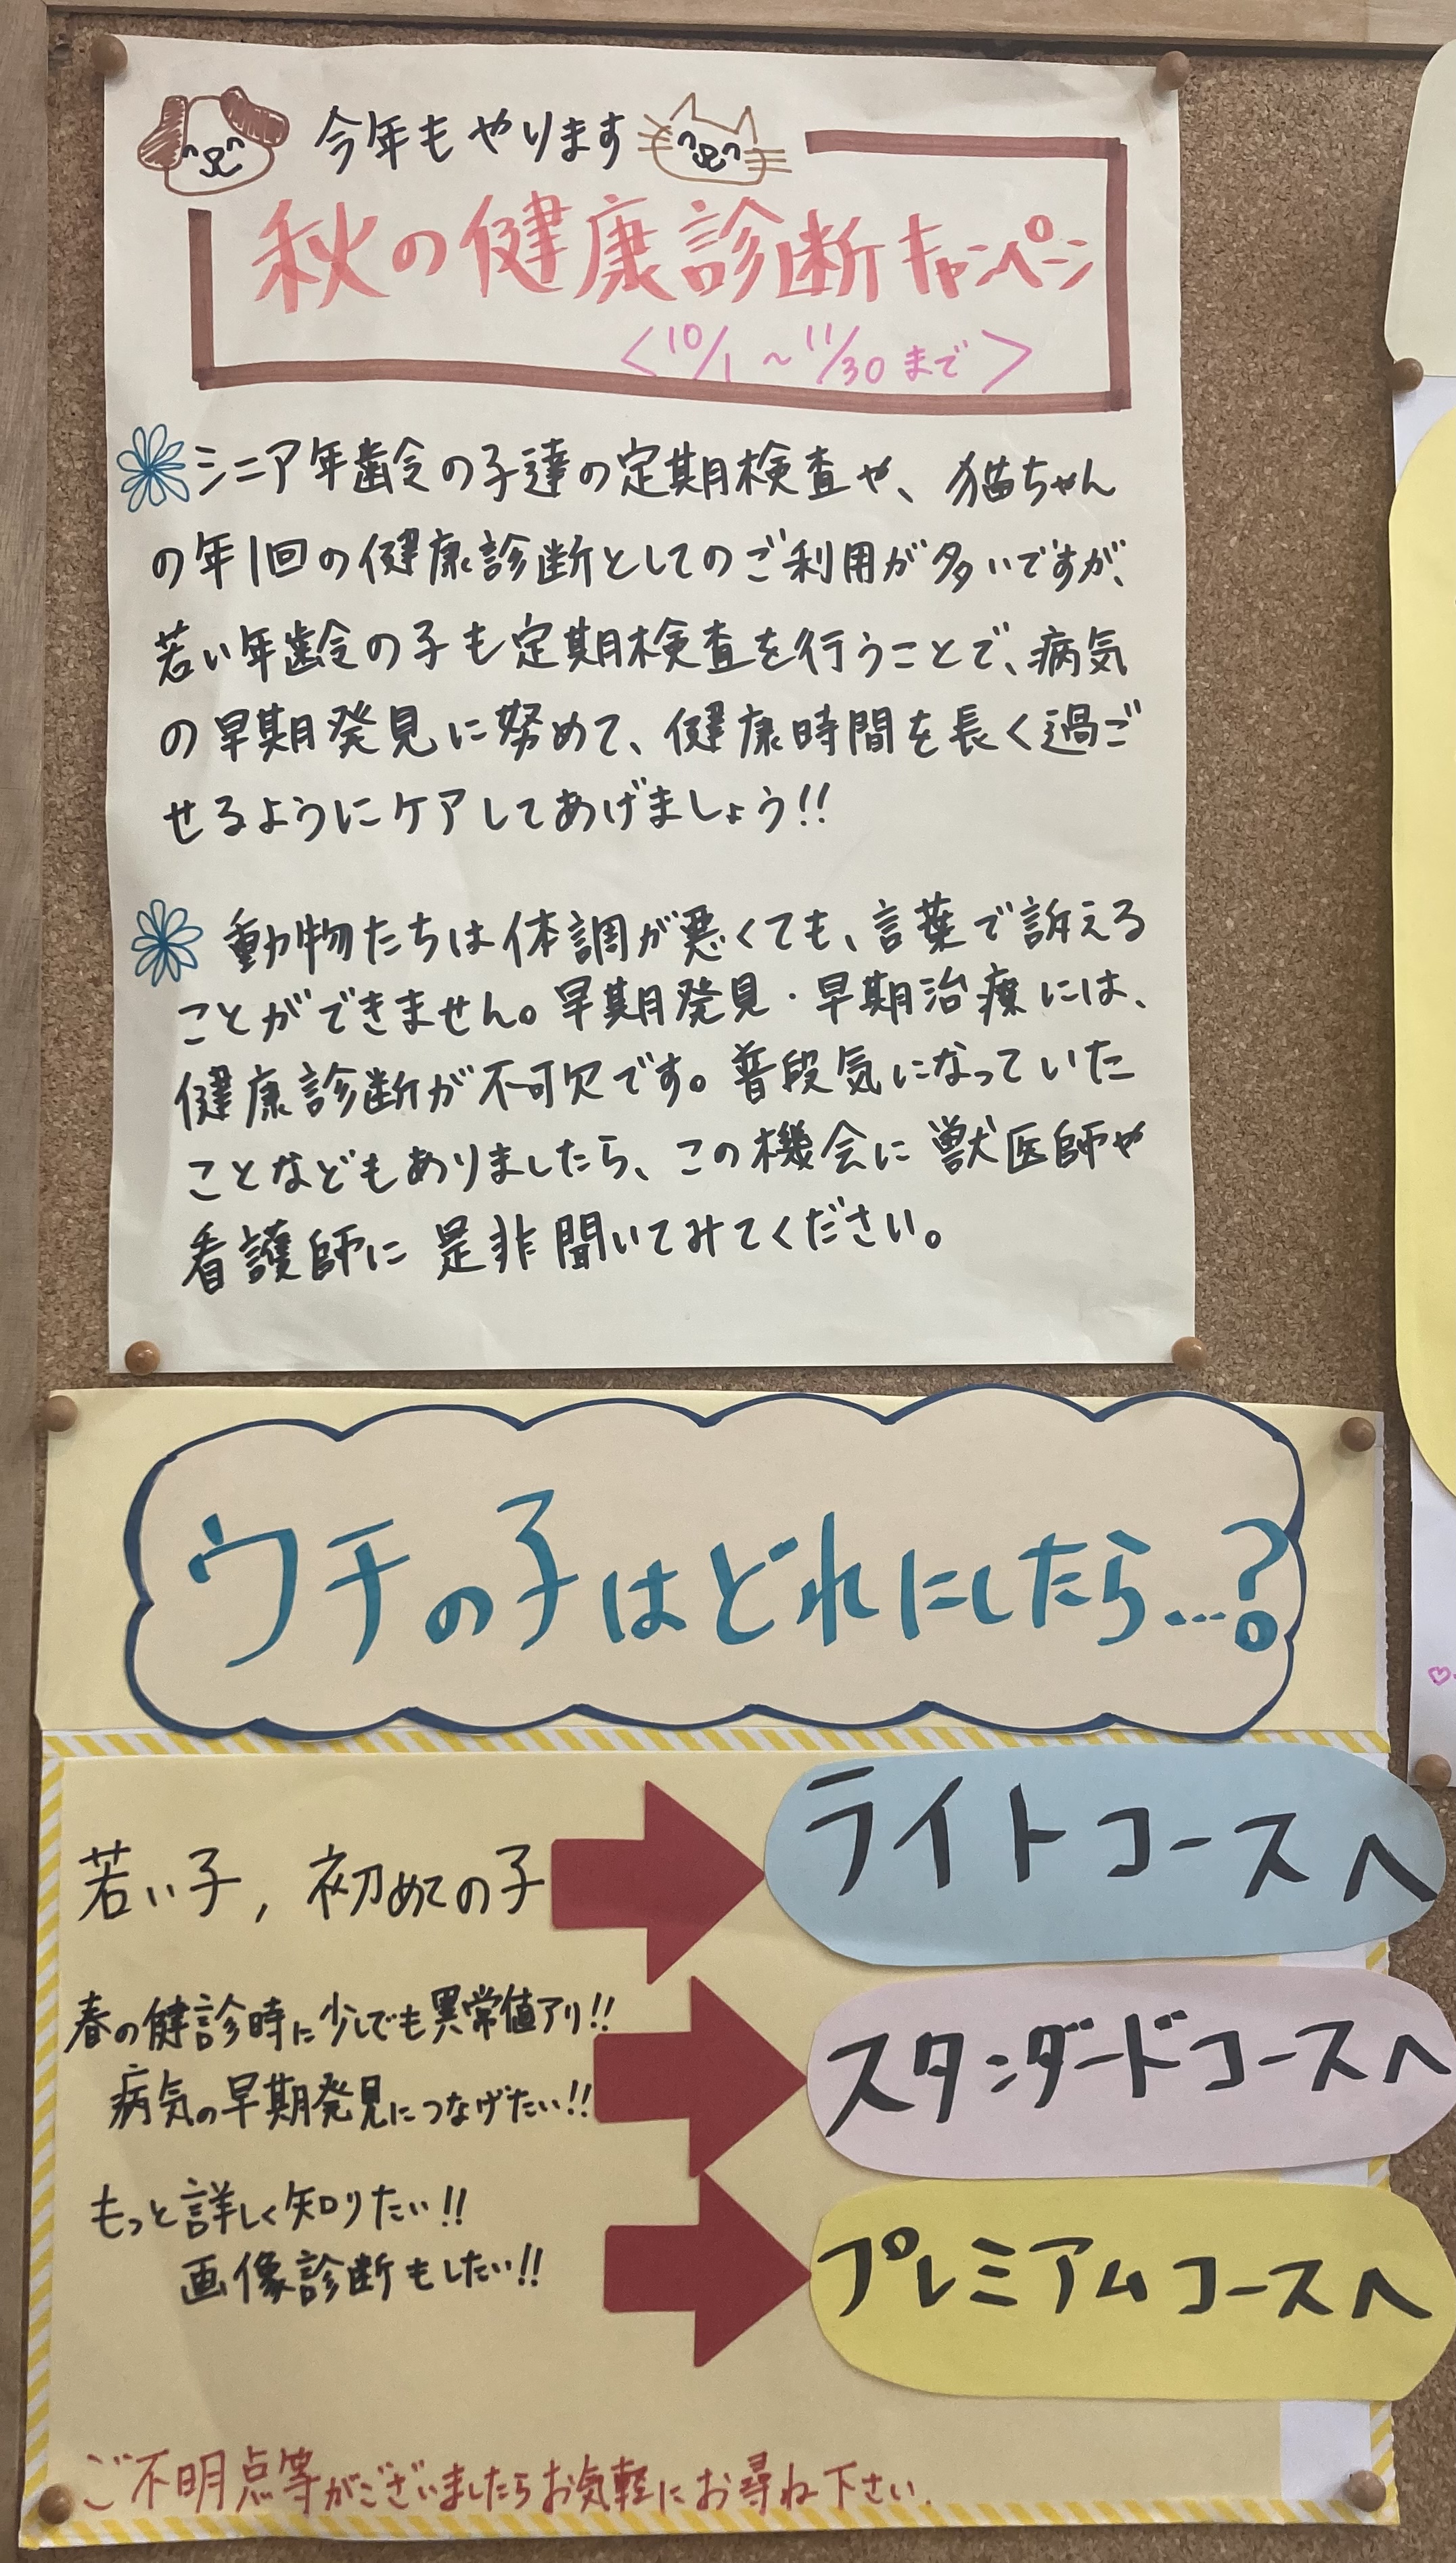 今年もやります
秋の健康診断キャンペーン
<10/1 ~ 11/30 まで>
シニア年齢の子達の定期検査や、猫ちゃん
の年1回の健康診断としてのご利用が多いですが、
若い年齢の子も定期検査を行うことで、病気
の早期発見に努めて、健康時間を長く過ご
せるようにケアしてあげましょう!!
動物たちは体調が悪くても、言葉で訴える
ことができません。早期発見・早期治療には、
健康診断が不可欠です。普段気になっていた
ことなどもありましたら、この機会に獣医師や
看護師に是非聞いてみてください。
ウチの子はどれにしたら…?
若い子, 初めての子
ライトコースへ
春の健診時に少しでも異常値アリ!!
病気の早期発見につなげたい!!
スタンダードコースへ
もっと詳しく知りたい!!
画像診断もしたい!!
プレミアムコースへ
ご不明点等がございましたらお気軽にお尋ね下さい.